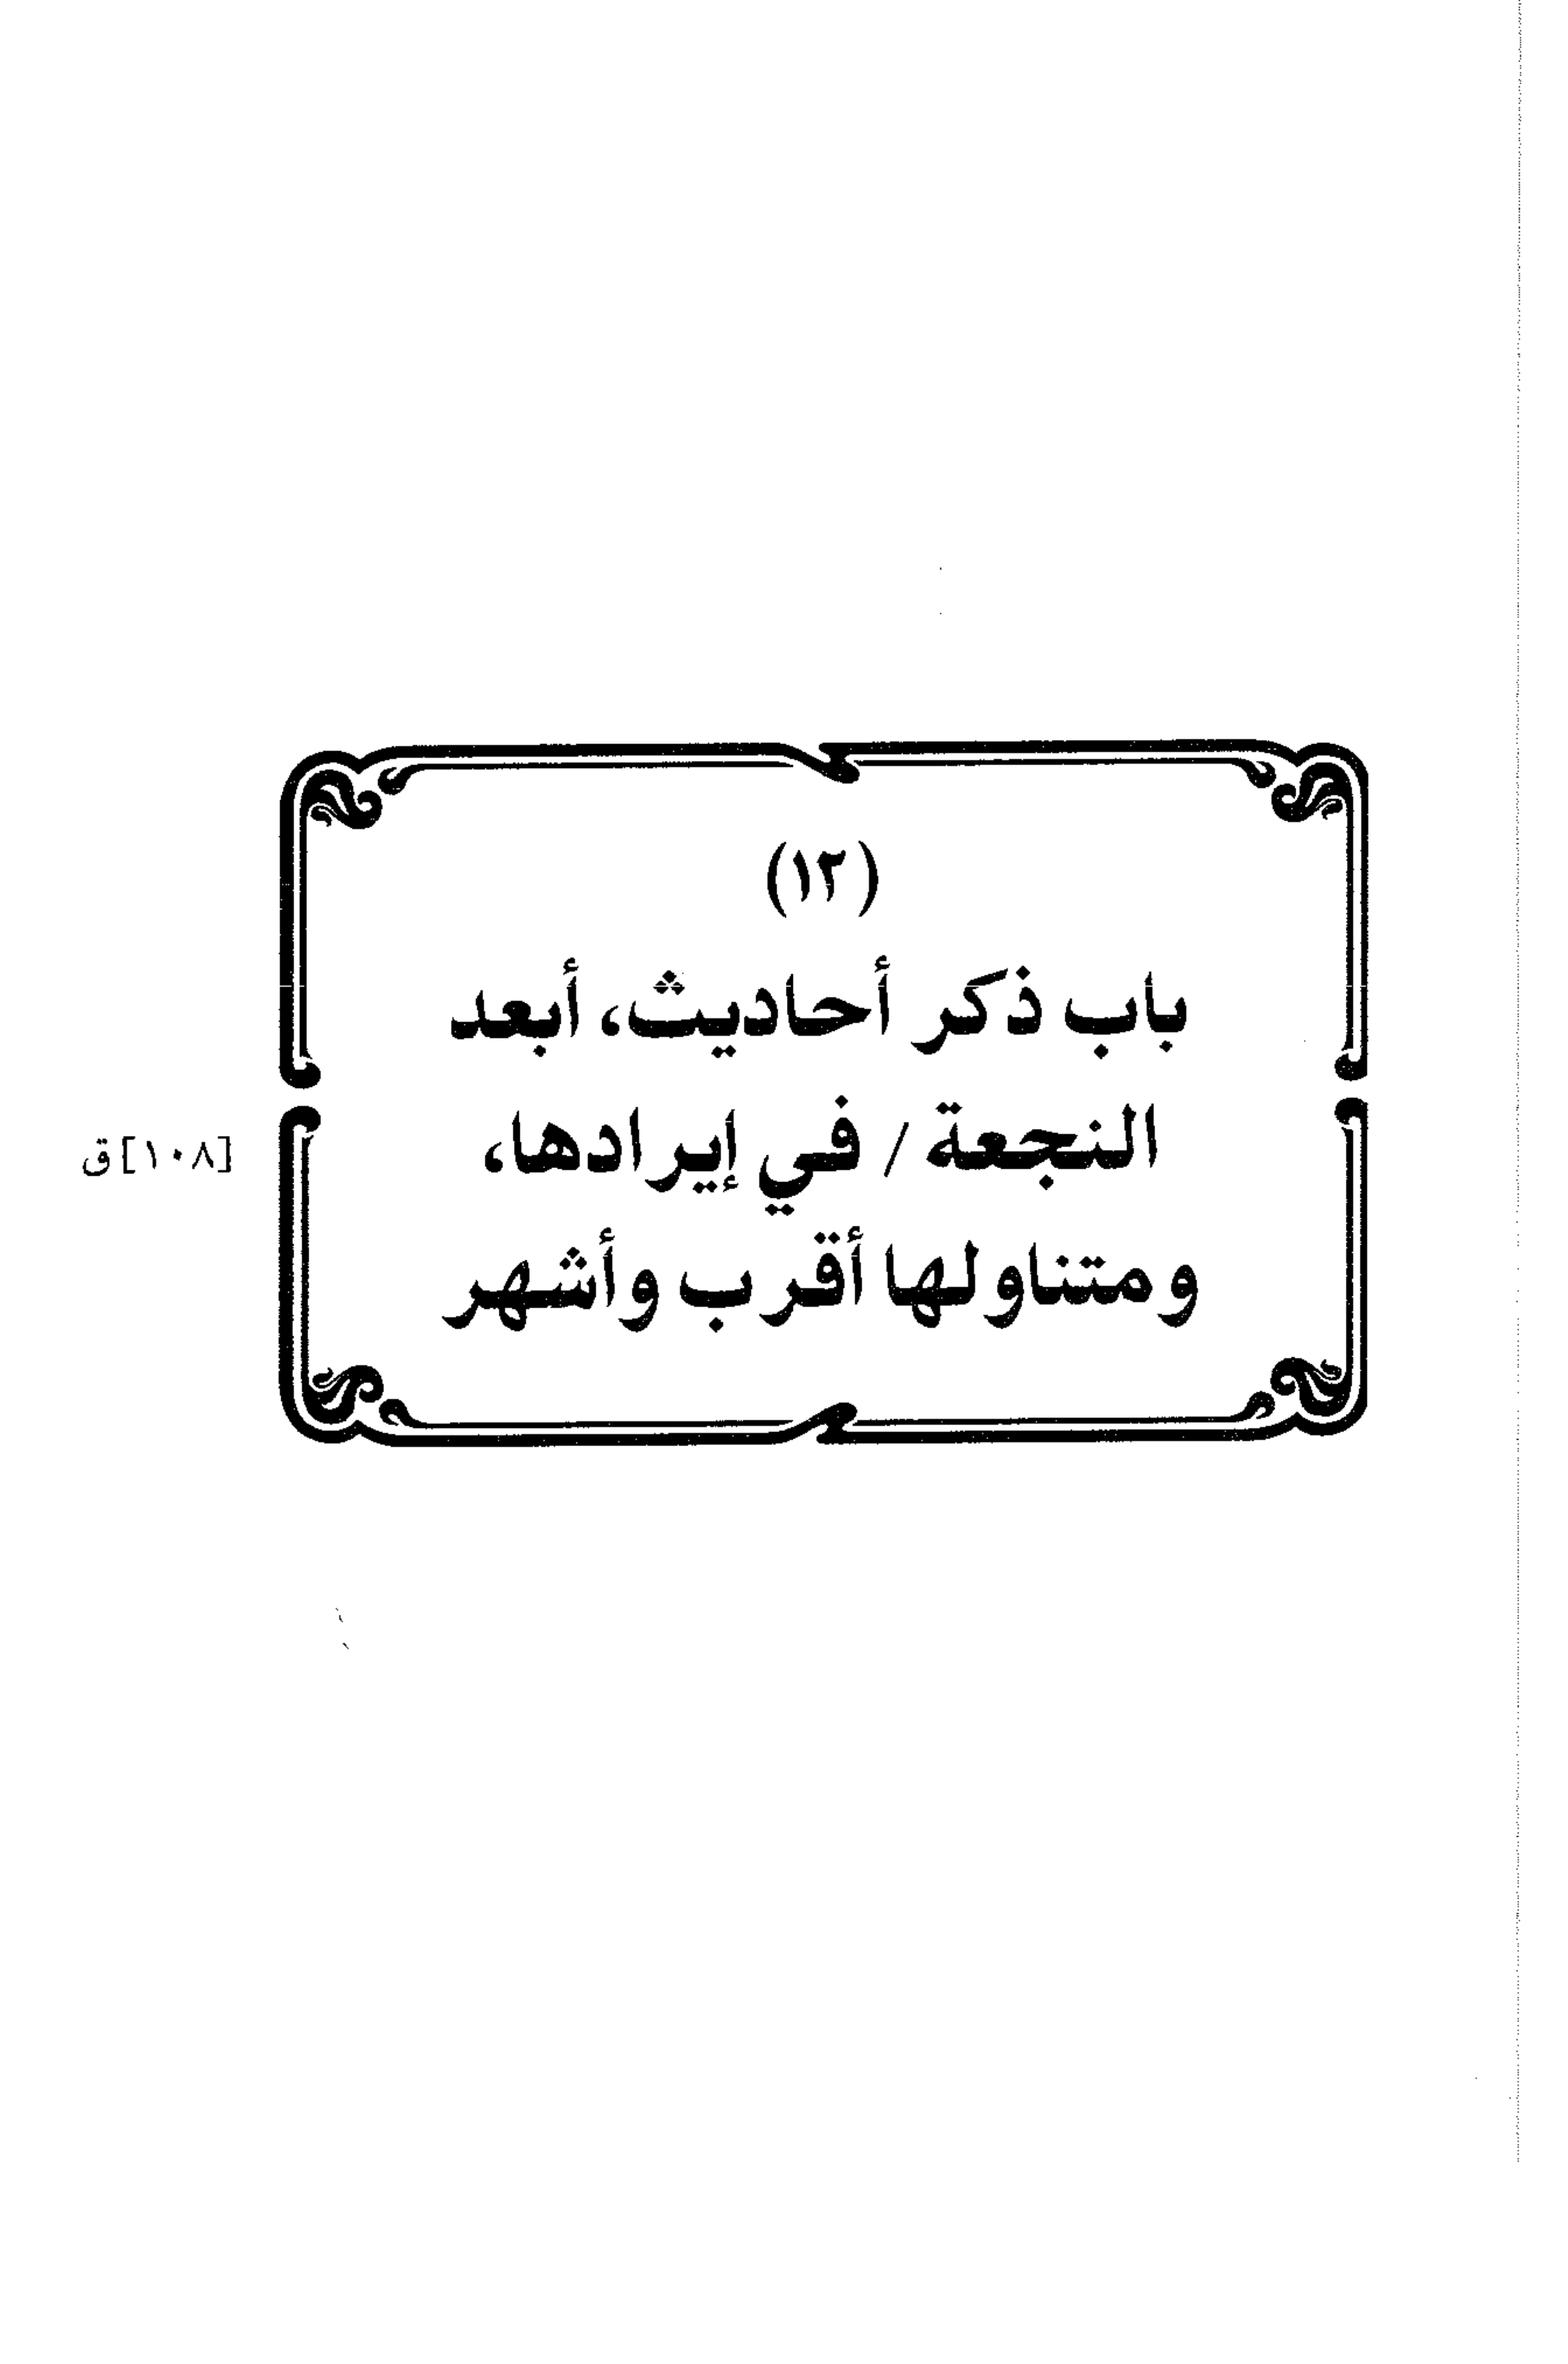 (١٢)
باب ذكر أحاديث، أبعد
النجعة / في إيرادها،
[١٠٨] ق
ومتناولها أقرب وأشهر